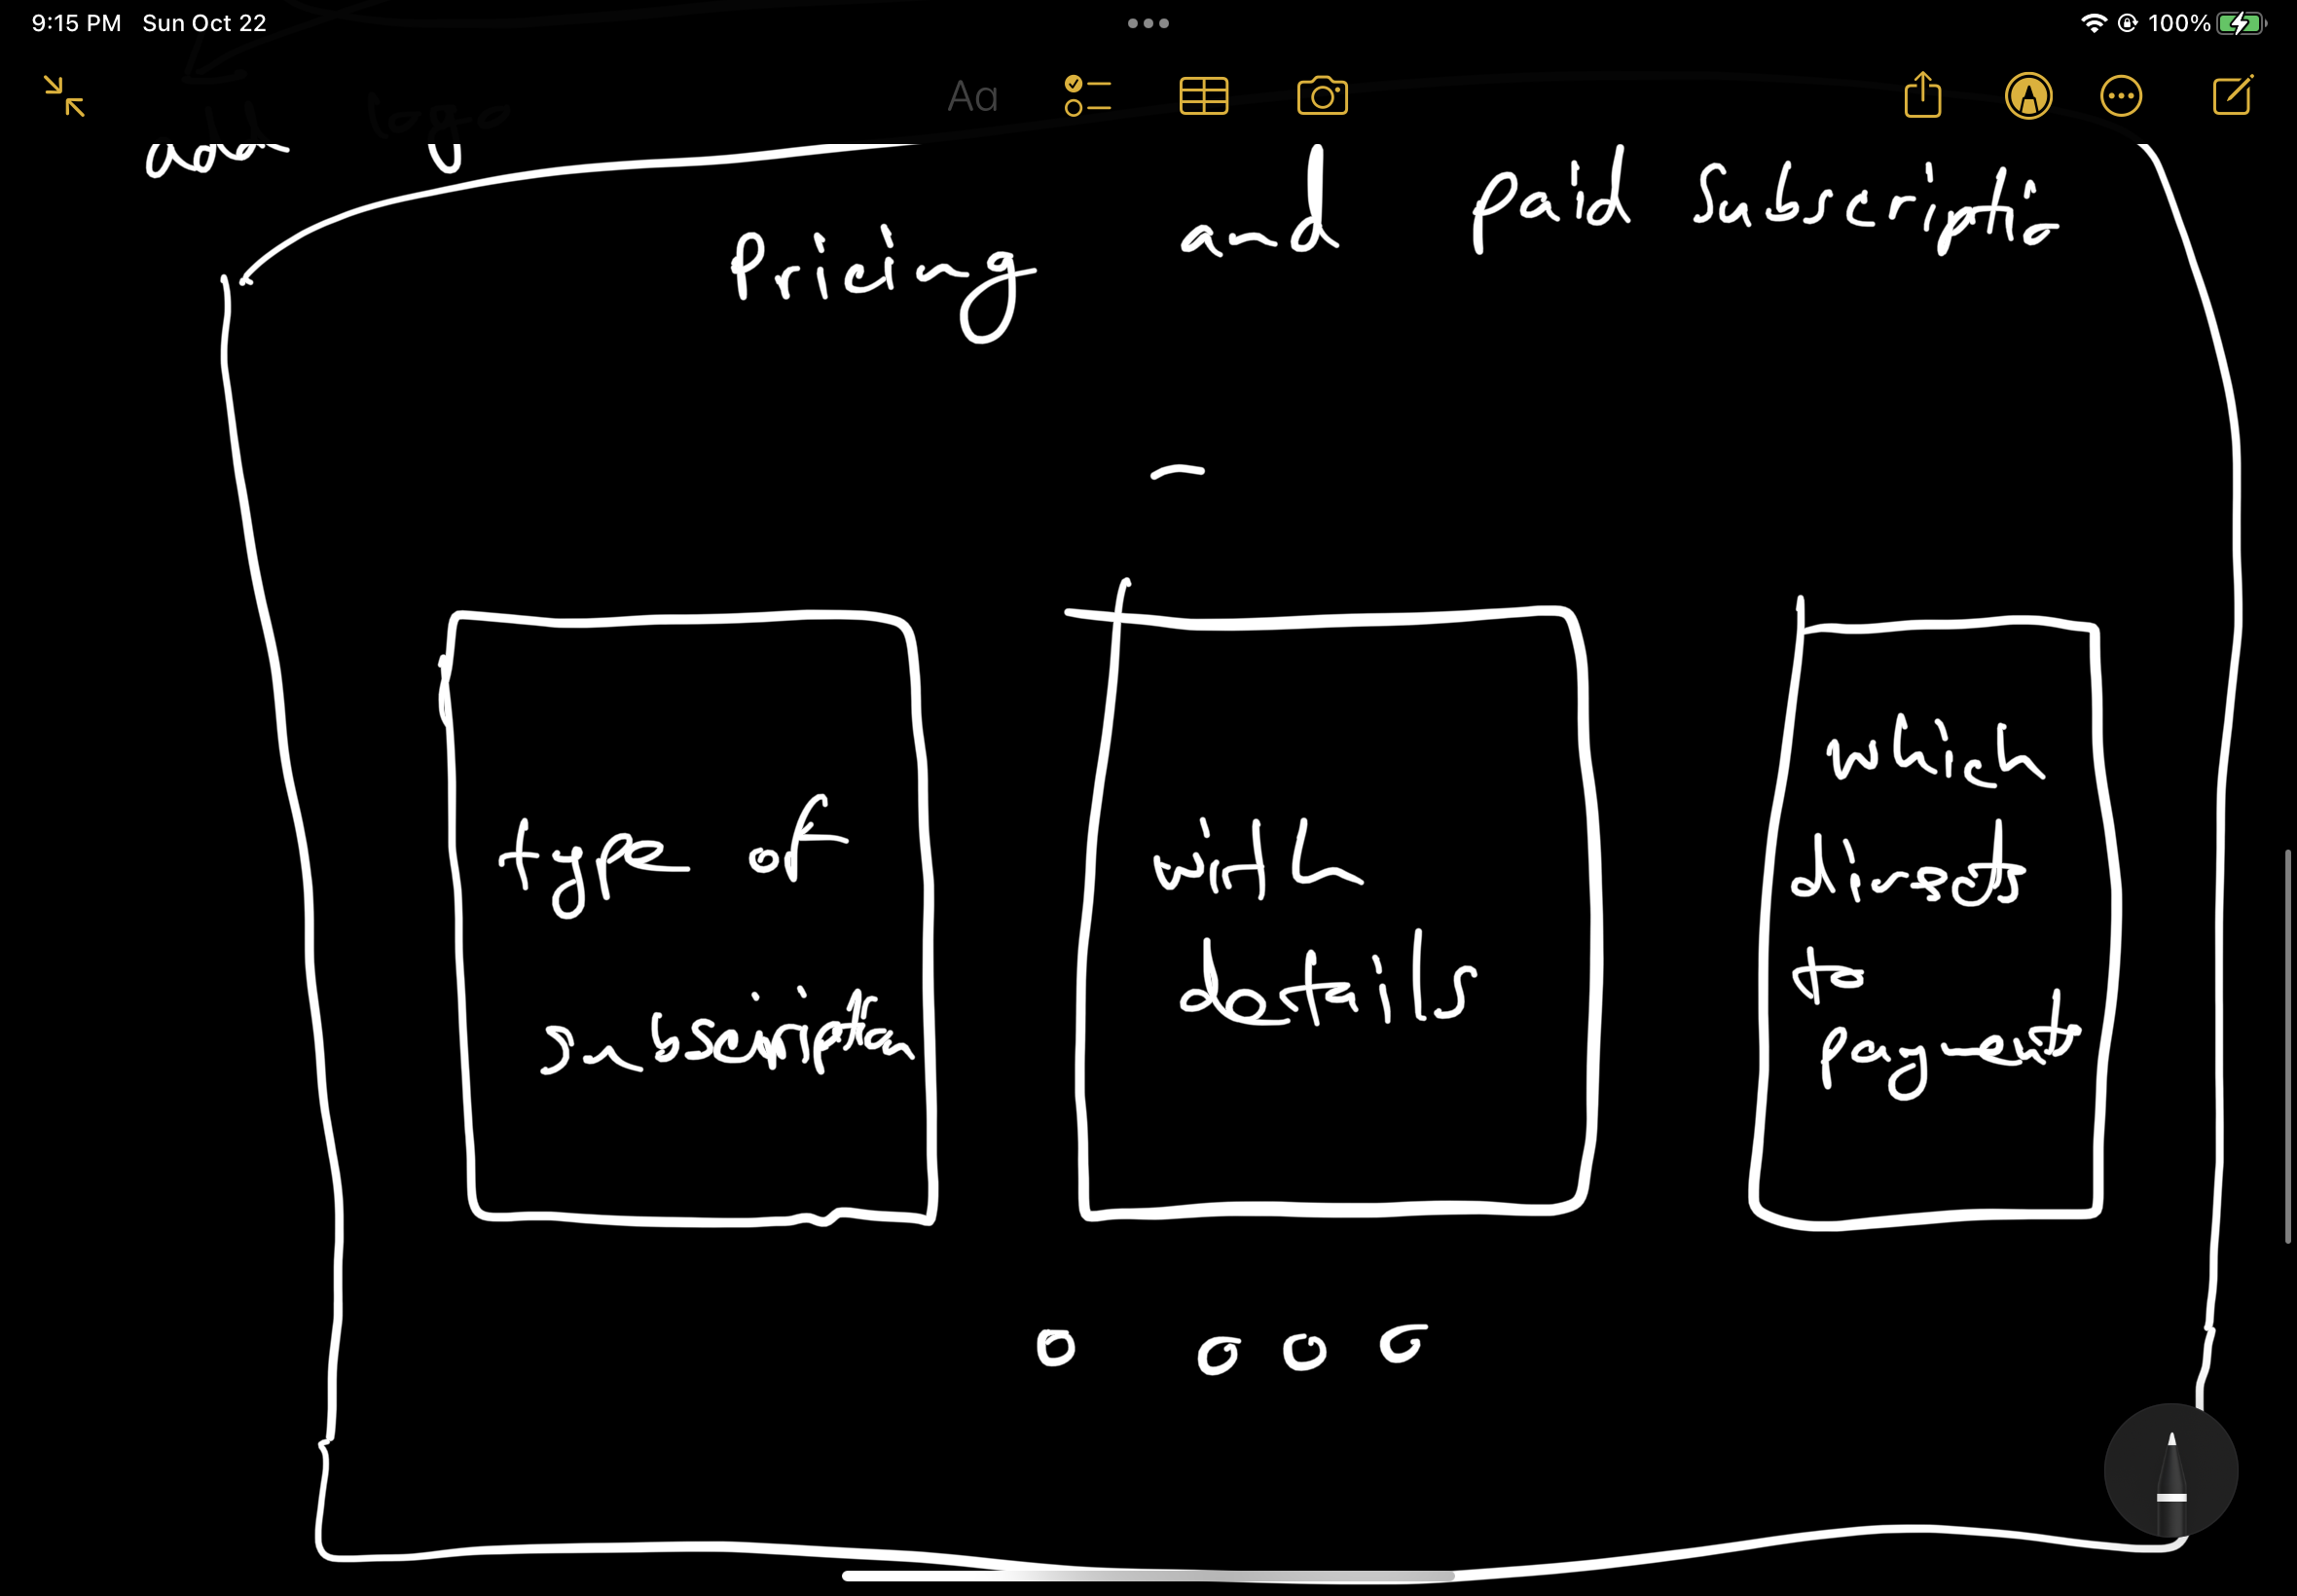 9:15 PM Sun Oct 22
100%
Aa
add logo
Pricing and paid Subscriptio
type of
subscription
with
details
which
directs
to
payment